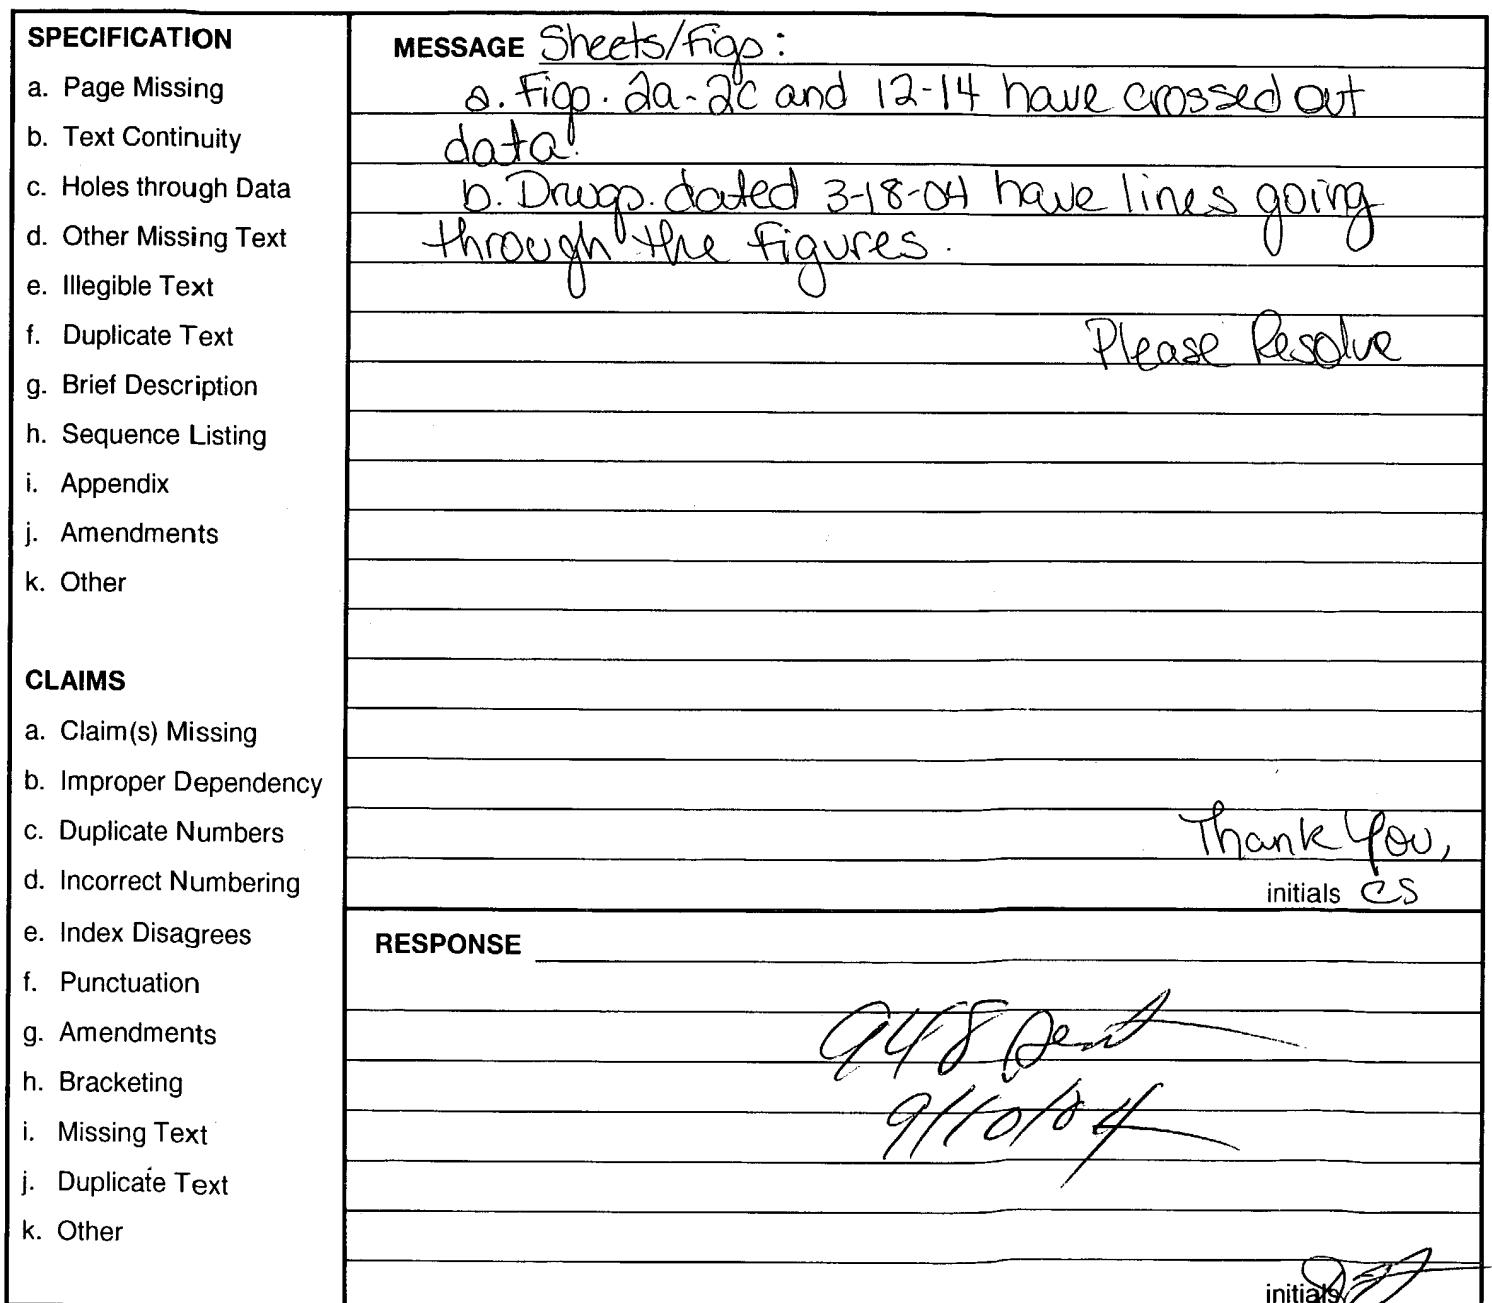 SPECIFICATION
a. Page Missing
b. Text Continuity
c. Holes through Data
d. Other Missing Text
e. Illegible Text
f. Duplicate Text
g. Brief Description
h. Sequence Listing
i. Appendix
j. Amendments
k. Other
CLAIMS
a. Claim(s) Missing
b. Improper Dependency
c. Duplicate Numbers
d. Incorrect Numbering
e. Index Disagrees
f. Punctuation
g. Amendments
h. Bracketing
i. Missing Text
j. Duplicate Text
k. Other
MESSAGE Sheets/Figs:
a. Figs. 2a-2c and 12-14 have crossed out
data.
b. Drwgs. dated 3-18-04 have lines going
through the figures.
Please Resolve
Thank You,
initials CS
RESPONSE
948 sent
9/10/04
initials